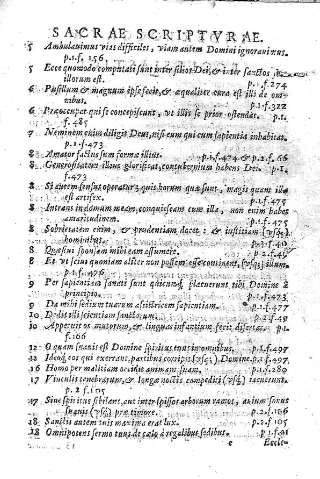 SACRAE SCRIPTVRAE.
5 Ambulauimus vias difficiles, viam autem Domini ignorauimus.
p.1.f. 156.
5 Ecce quomodo computati sunt inter filios Dei, & inter sanctos
illorum est.
6 Pusillum & magnum ipse fecit, & æqualiter cura est illi de om-
nibus. p.1.f.322
6 Præoccupat qui se concupiscunt, vt illis se prior ostendat. p.1.
f. 485
7 Neminem enim diligit Deus, nisi eum qui cum sapientia inhabitat.
p.1.f.473
8 Amator factus sum formæ illius. p.1.f.474 & p.2.f.66
8 Generositatem illius glorificat, contubernium habens Dei. p.1.
f.473
8 Si autem sensus operatur, quis horum quæ sunt, magis quam illa
est artifex. p.1.f.475
8 Intrans in domum meam, conquiescam cum illa, non enim habet
amaritudinem. p.1.f.475
8 Sobrietatem enim, & prudentiam docet: & iustitiam (vsq;)
hominibus.
8 Quæsiui sponsam mihi eam assumere.
8 Et vt sciui quoniam aliter non possem esse continens, (vsq;) illum.
p.1.f.476
9 Per sapientiam sanati sunt quicunq; placuerunt tibi Domine à
principio. p.1.f.473
9 Da mihi sedium tuarum assistricem sapientiam. p.1.f.477
10 Dedit illi scientiam sanctorum.
10 Aperuit os mutorum, & linguas infantium fecit disertas. p.1.
f.166
12 O quam suauis est Domine spiritus tuus in omnibus. p.1.f.497
12 Ideoq; eos qui exerrant, partibus corripis (vsq;) Domine. p.1.f.497
16 Homo per malitiam occidit animam suam. p.1.f.280
17 Vinculis tenebrarum, & longæ noctis compediti (vsq;) iacuerunt.
p.2.f.105
17 Siue spiritus sibilans, aut inter spissos arborum ramos, auium sonus
suauis (vsq;) præ timore. p.2.f.106
18 Sanctis autem tuis maxima erat lux. p.2.f.105
18 Omnipotens sermo tuus de cælo à regalibus sedibus. p.1.f.91
c Eccle-